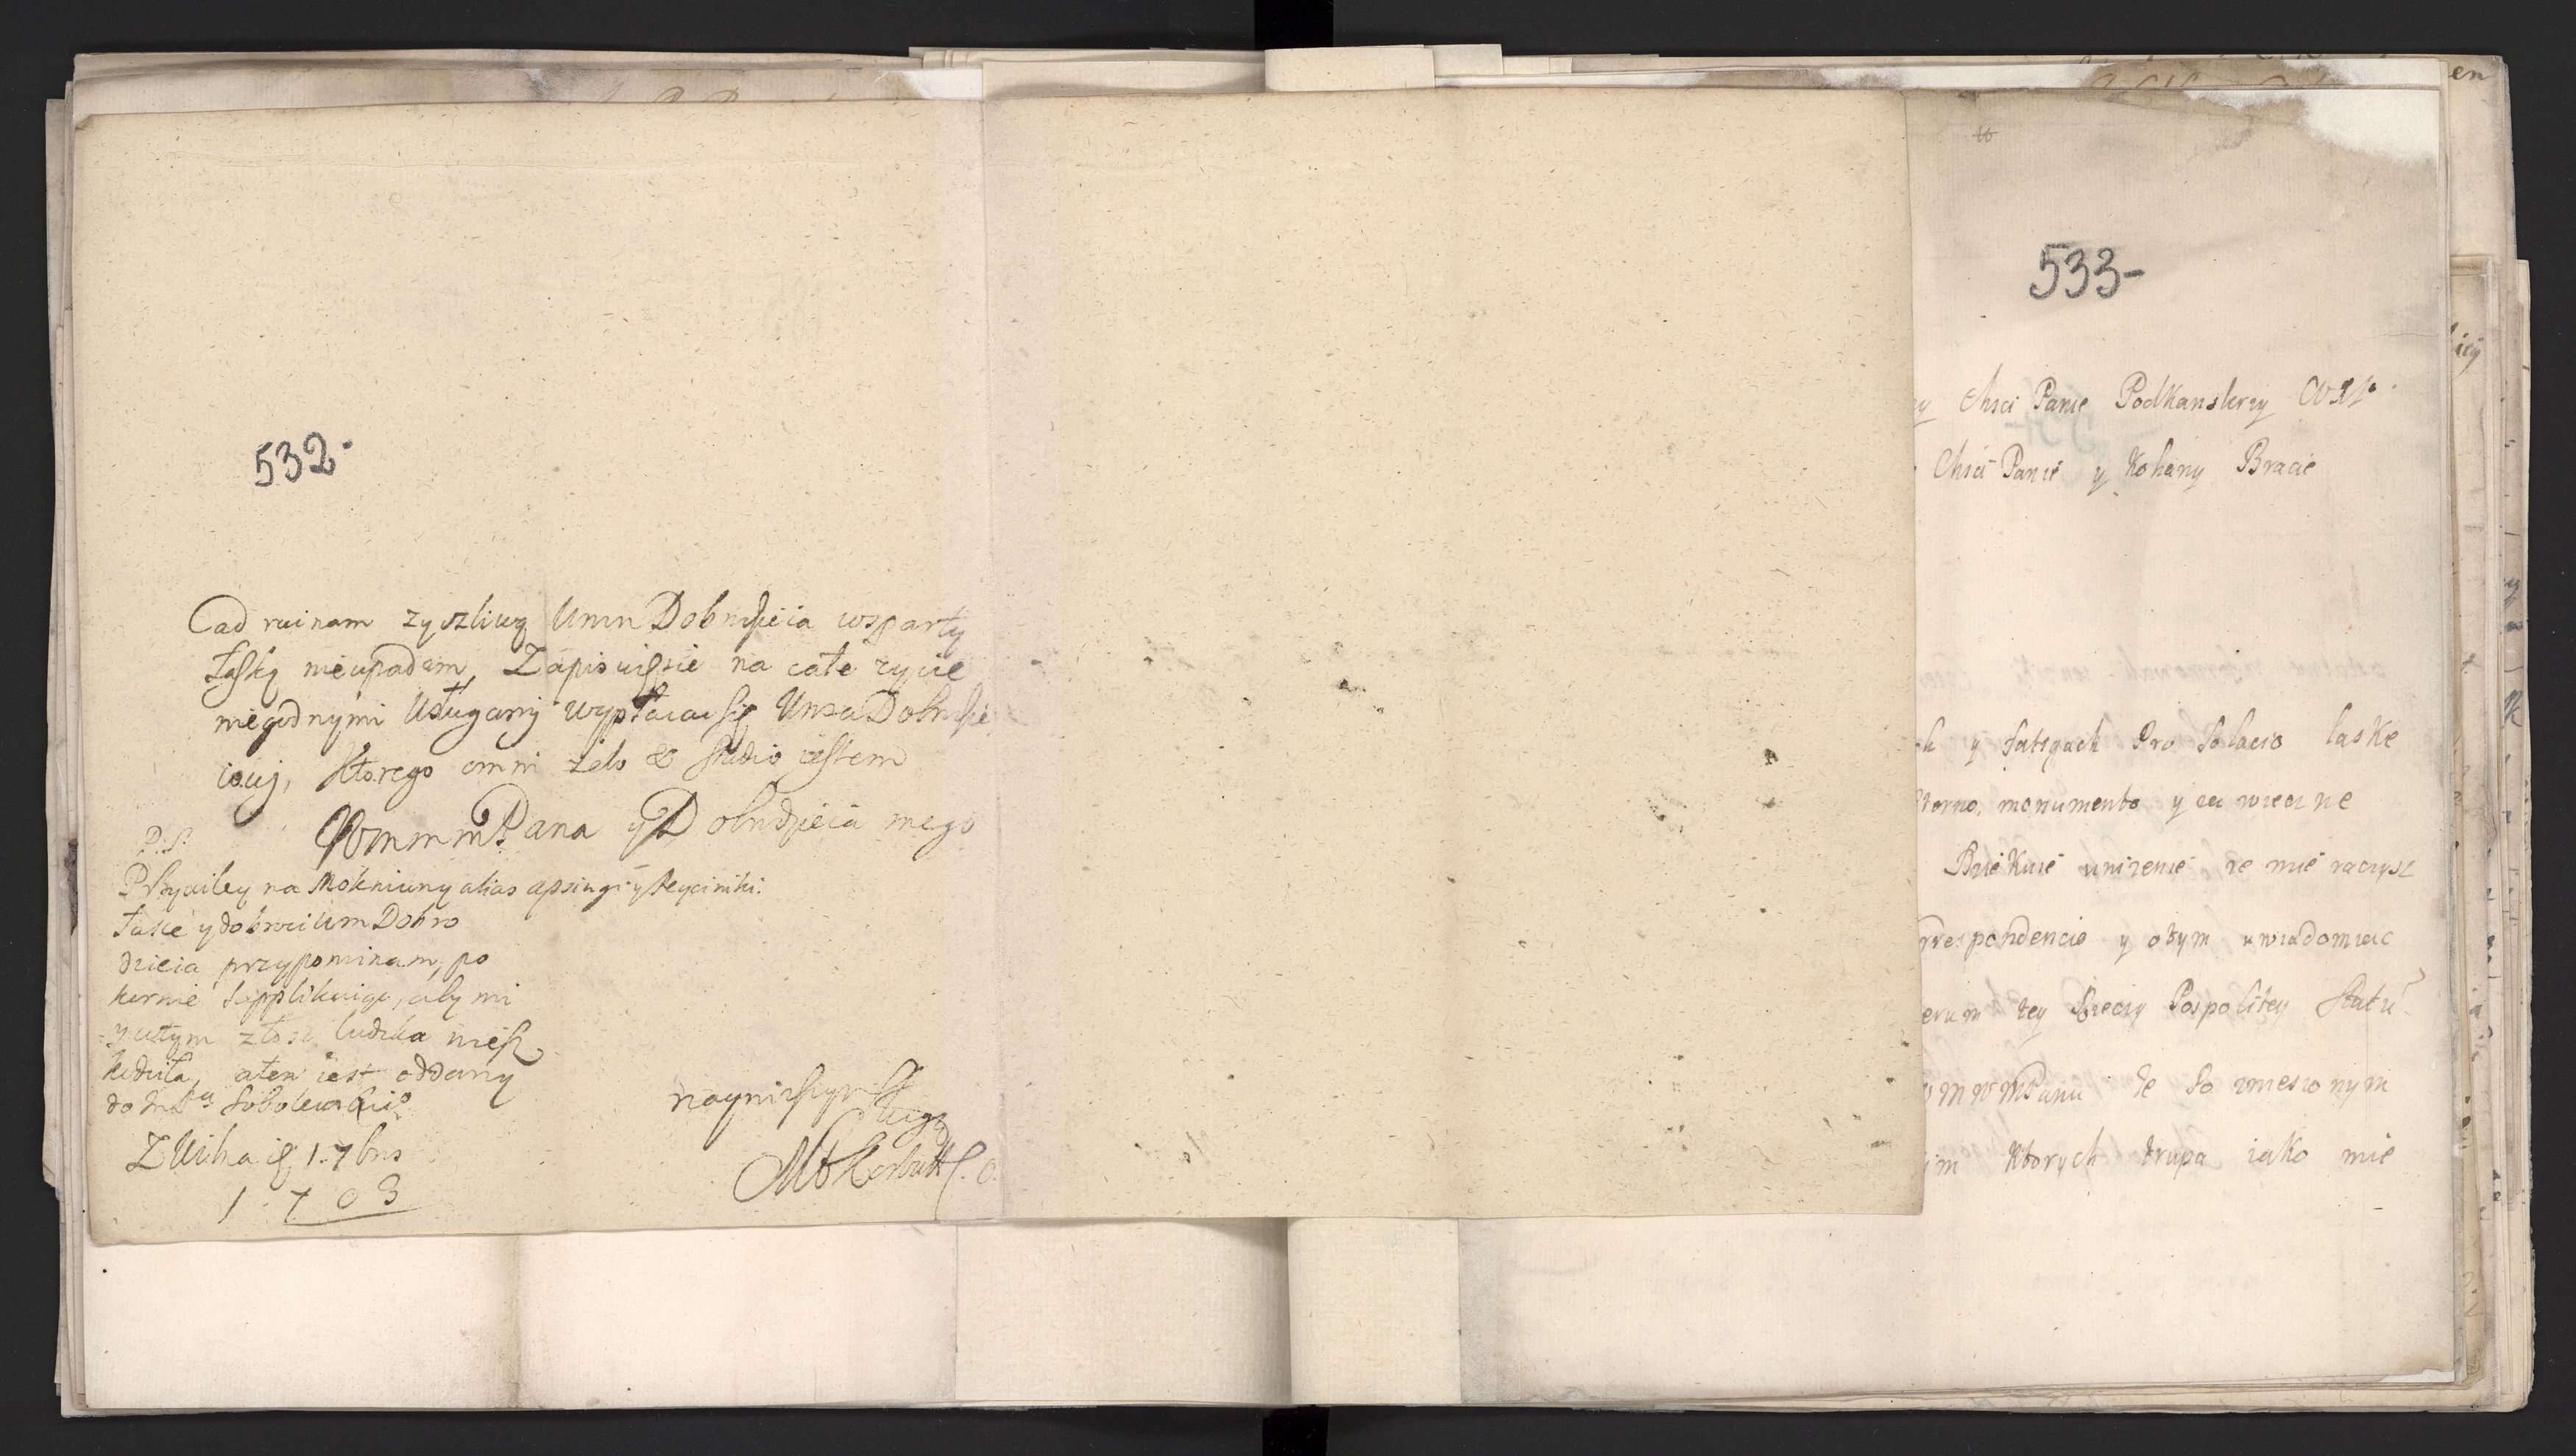 532-
Cad ruinam zyczliwą Umn Dobrdzieia wsparty
Łaską nieupadam, Zapisuięsie na całe zycie
niegodnymi Usługamj wypłacacsię
iowj, Ktorego omni zelo & studio iestem
WmmmPana y Dobrdzieia mego
P.S.
Przywiley na Mokniuny alias
Łasce y dobroci Um Dobro
dzieia przypominam, po
kornie supplikuiąc, aby mi
y wtym złosc ludzka niesz
kodziła, aten iest oddany
do
Z Wilna 17bris
1703
naynizszym sługą
533-
Msci Panie Podkanslerzy
Msci Panie y Kohany Bracie
y fatigach Pro Solacio laske
monumento y za wieczne
Dziekuie unizenie ze mie raczysz
rrespondencie y otym uwiadomiac
erum tey Rzeczy Pospolitey Statu
mWMPanu ze So zniesionym
im Ktorych trupa iako mie